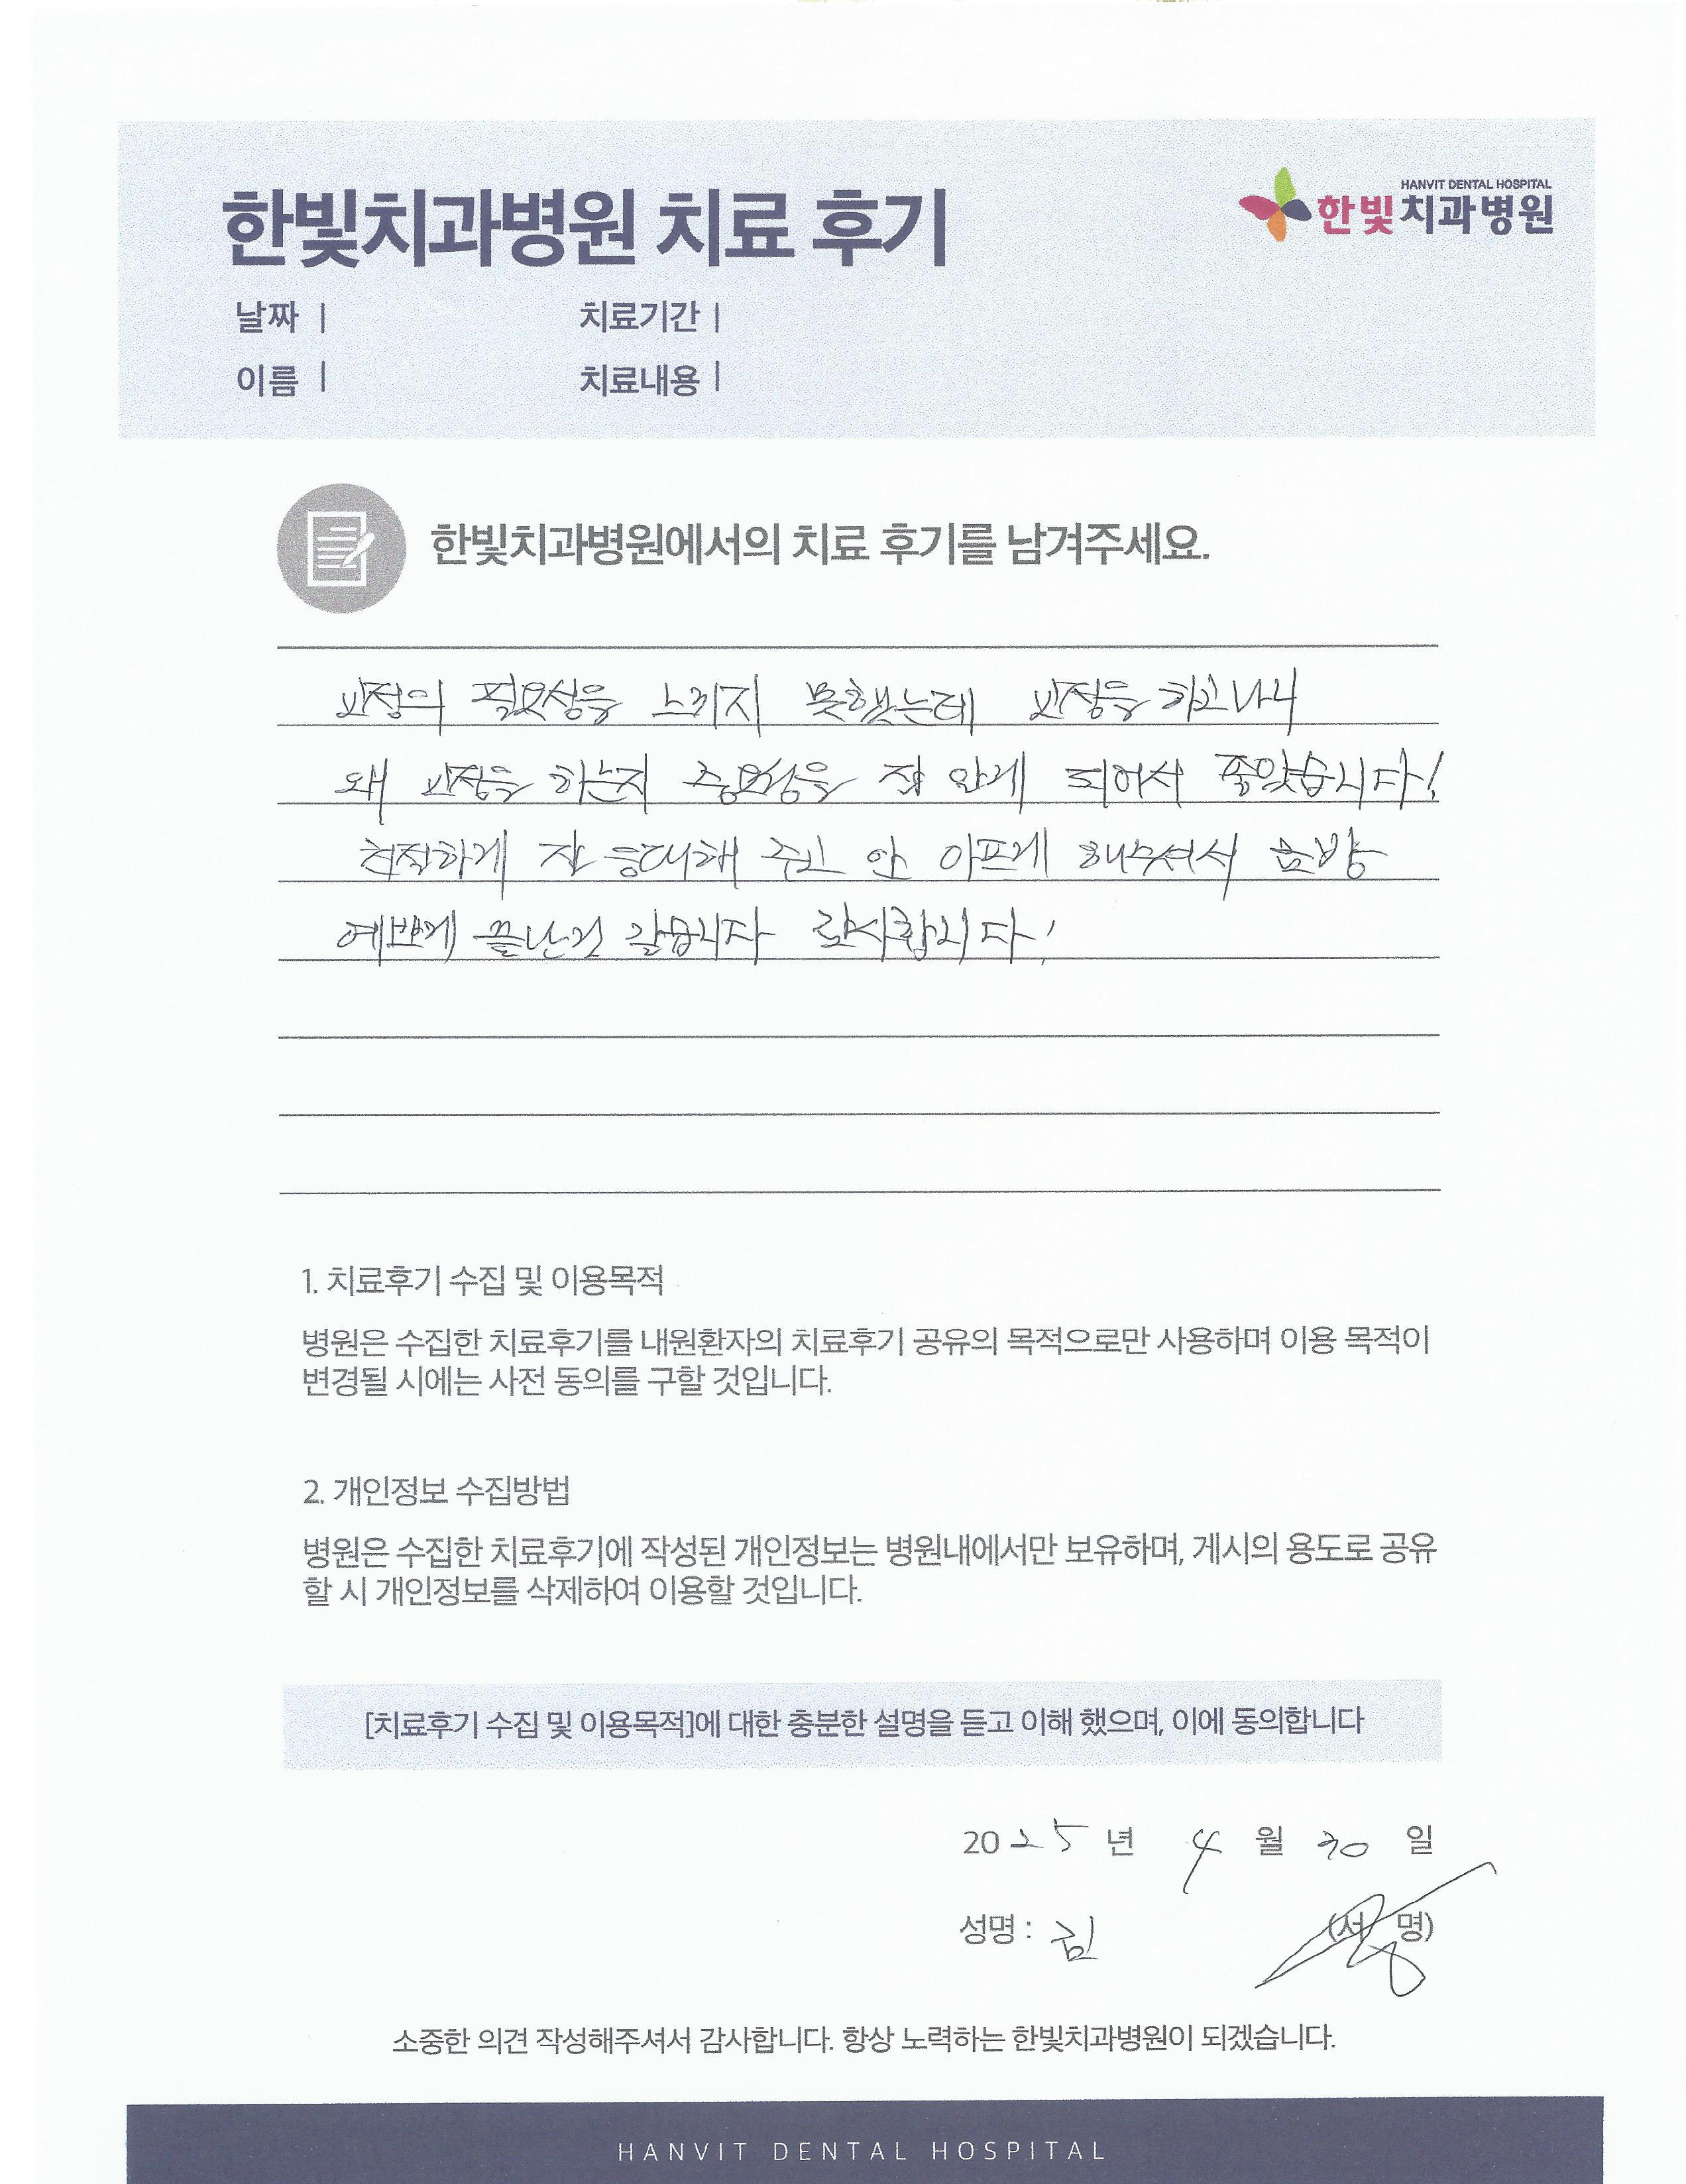 한빛치과병원 치료 후기
HANVIT DENTAL HOSPITAL
한빛치과병원
날짜 | 치료기간 |
이름 | 치료내용 |
한빛치과병원에서의 치료 후기를 남겨주세요.
교정의 필요성을 느끼지 못했는데 교정을 하고나니
왜 교정을 하는지 중요성을 잘 알게 되어서 좋았습니다!
친절하게 잘 응대해 주고 안 아프게 해주셔서 금방
예쁘게 끝난것 같습니다 감사합니다!
1. 치료후기 수집 및 이용목적
병원은 수집한 치료후기를 내원환자의 치료후기 공유의 목적으로만 사용하며 이용 목적이
변경될 시에는 사전 동의를 구할 것입니다.
2. 개인정보 수집방법
병원은 수집한 치료후기에 작성된 개인정보는 병원내에서만 보유하며, 게시의 용도로 공유
할 시 개인정보를 삭제하여 이용할 것입니다.
[치료후기 수집 및 이용목적]에 대한 충분한 설명을 듣고 이해 했으며, 이에 동의합니다
2025 년 4 월 30 일
성명 : 김 (서 명)
소중한 의견 작성해주셔서 감사합니다. 항상 노력하는 한빛치과병원이 되겠습니다.
HANVIT DENTAL HOSPITAL